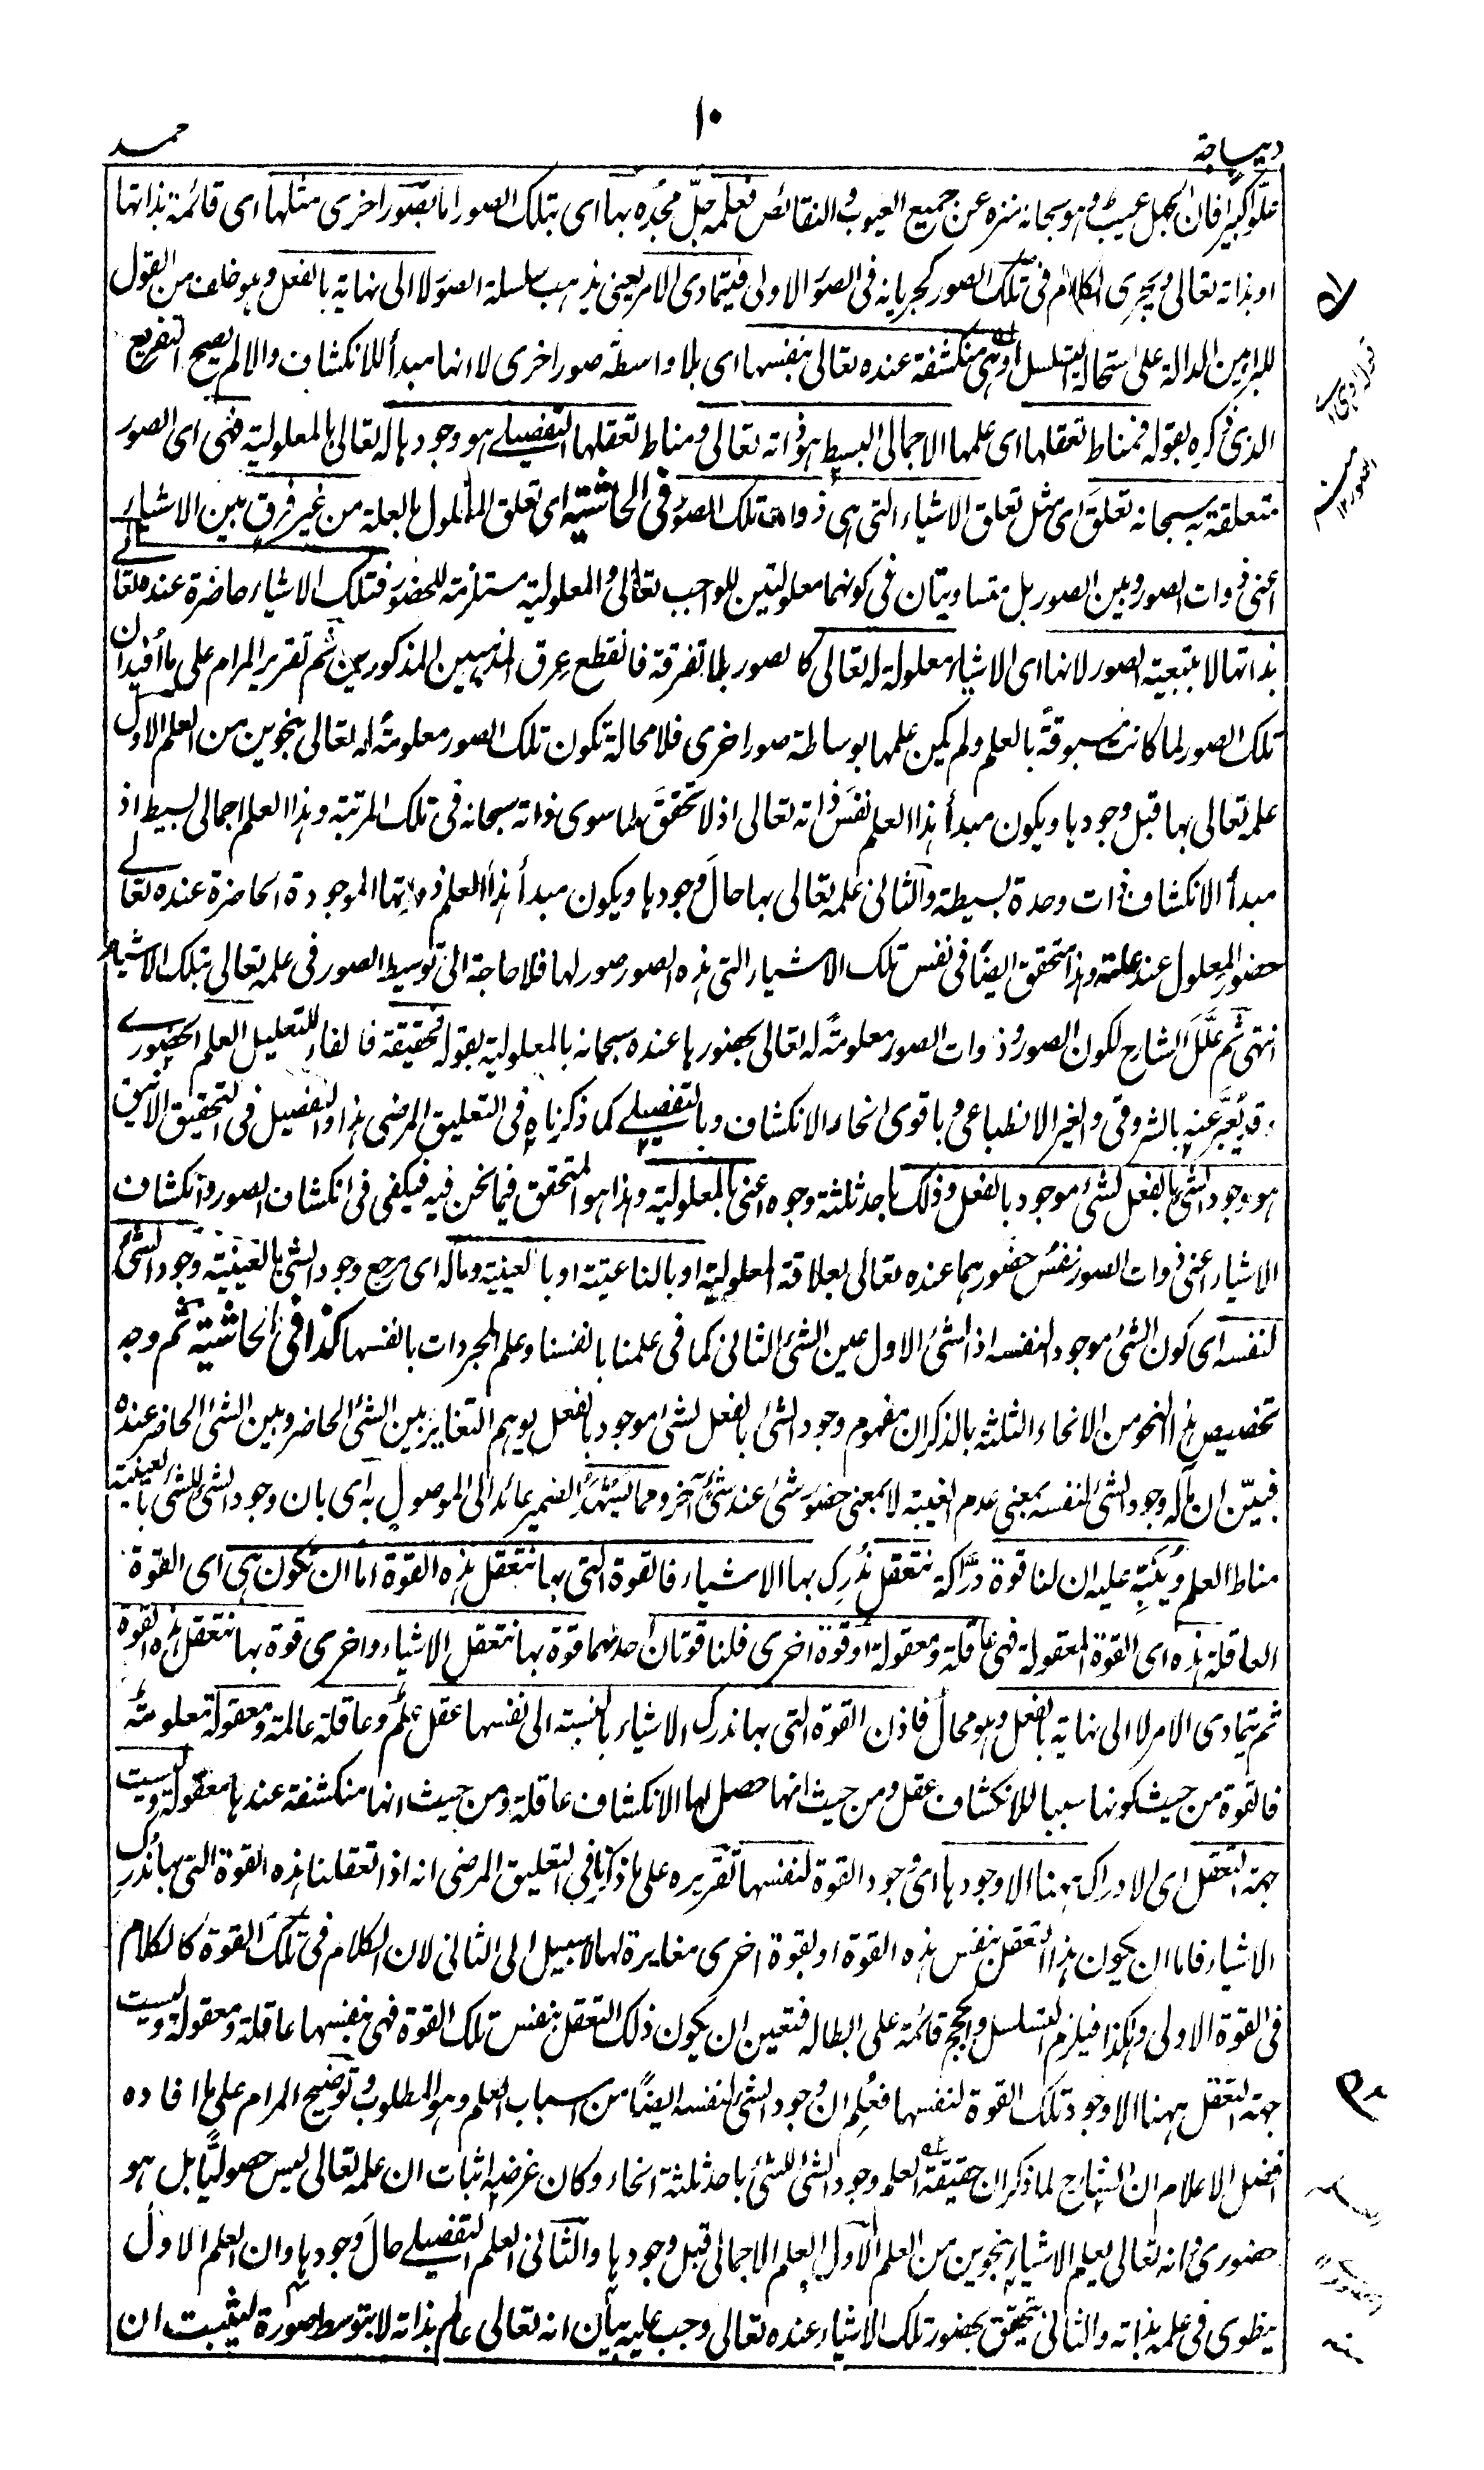 ١٠
ديباجة
حمد
علوّا كبيرا فان الجهل عيب وهو سبحانه منزه عن جميع العيوب والنقائص فعلمه جلّ مجده بها اى بتلك الصور اما بصور اخرى مثلها اى قائمة بذاتها
او بذاته تعالى ويجرى الكلام فى تلك الصور كجريانه فى الصور الاولى فيتمادى الامر يعنى يذهب سلسلة الصور لا الى نهاية بالفعل وهو خلف من القول
للبراهين الدالة على استحالة التسلسل او هى منكشفة عنده تعالى بنفسها اى بلا واسطة صور اخرى لا انها مبدأ للانكشاف والا لم يصح التفريع
الذى ذكره بقوله فمناط تعقلها اى علمها الاجمالى البسيط هو ذاته تعالى ومناط تعقلها التفصيلے هو وجودها له تعالى بالمعلولية فهى اى الصور
متعلقة به سبحانه تعلقَ اى مثل تعلق الاشياء التى هى ذوات تلك الصور فى الحاشية اى تعلق المعلول بالعلة من غير فرق بين الاشياء
اعنى ذوات الصور وبين الصور بل متساويتان فى كونهما معلولتين للواجب تعالى والمعلولية مستلزمة للحضور فتلك الاشياء حاضرة عنده تعالى
بذاتها لا بتبعية الصور لانها اى الاشياء معلولة له تعالى كالصور بلا تفرقة فانقطع عِرق المذهبين المذكورين ثم تقرير المرام على ما أفيد ان
تلك الصور لما كانت مسبوقة بالعلم ولم يكن علمها بوساطة صور اخرى فلا محالة تكون تلك الصور معلومة له تعالى بنحوين من العلم الاول
علمه تعالى بها قبل وجودها ويكون مبدأ هذا العلم نفسَ ذاته تعالى اذ لا تحققَ لما سوى ذاته سبحانه فى تلك المرتبة وهذا العلم اجمالى بسيط اذ
مبدأ الانكشاف ذات وحدة بسيطة والثانى علمه تعالى بها حالَ وجودها ويكون مبدأ هذا العلم ذواتها الموجودة الحاضرة عنده تعالے
حضور المعلول عند علته وهذا متحقق ايضًا فى نفس تلك الاشياء التى هذه الصور صور لها فلا حاجة الى توسيط الصور فى علمه تعالى بتلك الاشياء
انتهى ثم علّلَ الشارح لكون الصور وذوات الصور معلومة له تعالى بحضورها عنده سبحانه بالمعلولية بقوله فحقيقة فالفاء للتعليل العلم الحضورے
وقد يُعبَّر عنه بالشروقى والغير الانطباعى وباقوى انحاء الانكشاف وبالتفصيلے كما ذكرناه فى التعليق المرضى هذا والتفصيل فى التحقيق الانيق
هو وجود الشئ بالفعل لشئ موجود بالفعل وذلك باحد ثلثة وجوه اعنى بالمعلولية وهذا هو المتحقق فيما نحن فيه فيكفى فى انكشاف الصور وانكشاف
الاشياء اعنى ذوات الصور نفسُ حضورهما عنده تعالى بعلاقة المعلولية او بالناعتية او بالعينية ومآله اى مرجع وجود الشئ بالعينية وجود الشئ
لنفسه اى كون الشئ موجودا لنفسه اذ الشئ الاول عين الشئ الثانى كما فى علمنا بانفسنا وعلم المجردات بانفسها كذا فى الحاشية ثم وجه
تخصيص هذا النحو من الانحاء الثلثة بالذكر ان مفهوم وجود الشئ بالفعل لشئ موجود بالفعل يوهم التغاير بين الشئ الحاضر وبين الشئ الحاضر عنده
فبيّن ان مآله وجود الشئ لنفسه بمعنى عدم الغيبة لا بمعنى حضور شئ عند شئ آخر ومما يُنبِّهُ الضمير عائد الى الموصول به اى بان وجود الشئ للشئ بالعينية
مناط العلم ويُنَبِّه عليه ان لنا قوة درّاكة نتعقل نُدرِك بها الاشياء فالقوة التى بها نتعقل هذه القوة اما ان تكون هى اى القوة
العاقلة هذه اى القوة المعقولة فهى عاقلة ومعقولة او قوة اخرى فلنا قوتان احدٰهما قوة بها نتعقل الاشياء واخرى قوة بها نتعقل هذه القوة
ثم يتمادى الامر لا الى نهاية بالفعل وهو محال فاذن القوة التى بها ندرك الاشياء بالنسبة الى نفسها عقل علم وعاقلة عالمة ومعقولة معلومة
فالقوة من حيث كونها سببا للانكشاف عقل ومن حيث انها حصل لها الانكشاف عاقلة ومن حيث انها منكشفة عندها معقولة وليست
جهة التعقل اى الادراك ههنا الا وجودها اى وجود القوة لنفسها تقريره على ما ذكرنا فى التعليق المرضى انه اذا تعقلنا هذه القوة التى بها ندرك
الاشياء فاما ان يكون هذا التعقل بنفس هذه القوة او بقوة اخرى مغايرة لها لا سبيل الى الثانى لان الكلام فى تلك القوة كالكلام
فى القوة الاولى وهكذا فيلزم التسلسل والحجج قائمة على ابطاله فتعين ان يكون ذلك التعقل بنفس تلك القوة فهى بنفسها عاقلة ومعقولة وليست
جهة التعقل ههنا الا وجود تلك القوة لنفسها فعُلِم ان وجود الشئ لنفسه ايضًا من اسباب العلم وهو المطلوب وتوضيح المرام على ما افاده
افضل الاعلام ان الشارح لما ذكر ان حقيقة العلم وجود الشئ للشئ باحد ثلثة انحاء وكان غرضه اثبات ان علمه تعالى ليس حصوليًّا بل هو
حضورى وانه تعالى يعلم الاشياء بنحوين من العلم الاول العلم الاجمالى قبل وجودها والثانى العلم التفصيلے حالَ وجودها وان العلم الاول
ينطوى فى علمه بذاته والثانى يتحقق بحضور تلك الاشياء عنده تعالى وجب عليه بيان انه تعالى عالم بذاته لا بتوسط صورة ليثبت ان